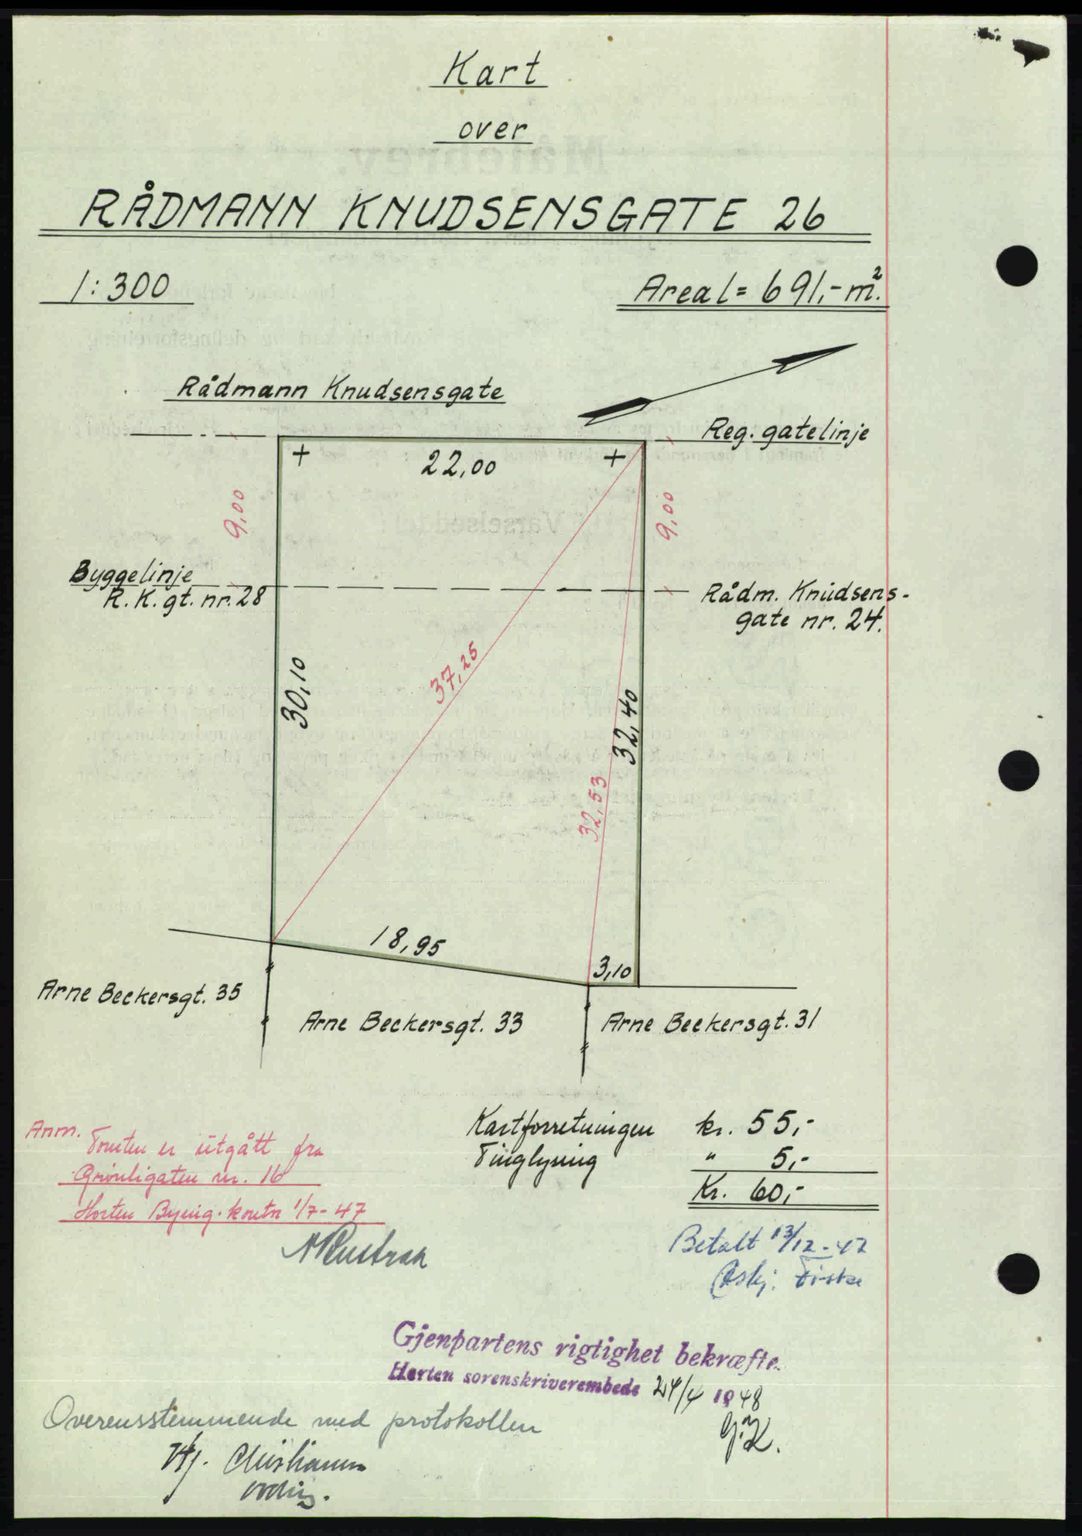 Kart
over
RÅDMANN KNUDSENSGATE 26
1:300
Areal = 691,- m².
Rådmann Knudsensgate
Reg. gatelinje
22,00
9,00
9,00
Byggelinje
R. K. gt. nr. 28
Rådm. Knudsens-
gate nr. 24.
37,25
30,10
32,40
32,53
18,95
3,10
Arne Beckersgt. 35
Arne Beckersgt. 33
Arne Beckersgt. 31
Anm. Tomten er utgått fra
Grønligaten nr. 16
Horten Bying. kontor 1/7-47
Kartforretningen kr. 55,-
Tinglysing " 5,-
Kr. 60,-
Betalt 13/12-47
Gjenpartens rigtighet bekræftes
Horten sorenskriverembede 24/4 1948
Overensstemmende med protokollen